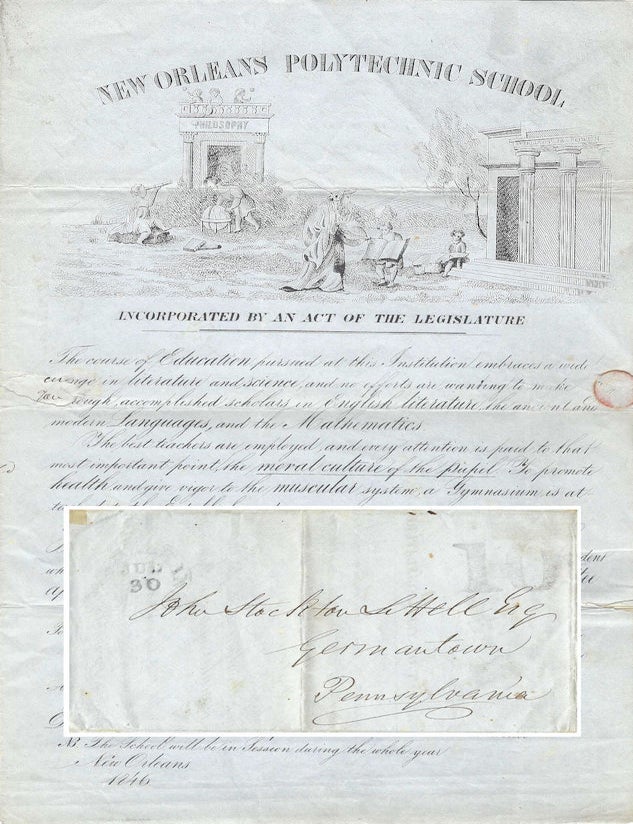 NEW ORLEANS POLYTECHNIC SCHOOL
PHILOSOPHY
INCORPORATED BY AN ACT OF THE LEGISLATURE
The course of Education pursued at this Institution embraces a wide
range in literature and science, and no efforts are wanting to make
accomplished scholars in English literature, the ancient and
modern Languages, and the Mathematics
The best teachers are employed and every attention is paid to that
most important point, the moral culture of the pupil. To promote
health and give vigor to the muscular system, a Gymnasium is at
30
10
John Stockton Littell Esq
Germantown
Pennsylvania
NB The School will be in Session during the whole year
New Orleans
1846